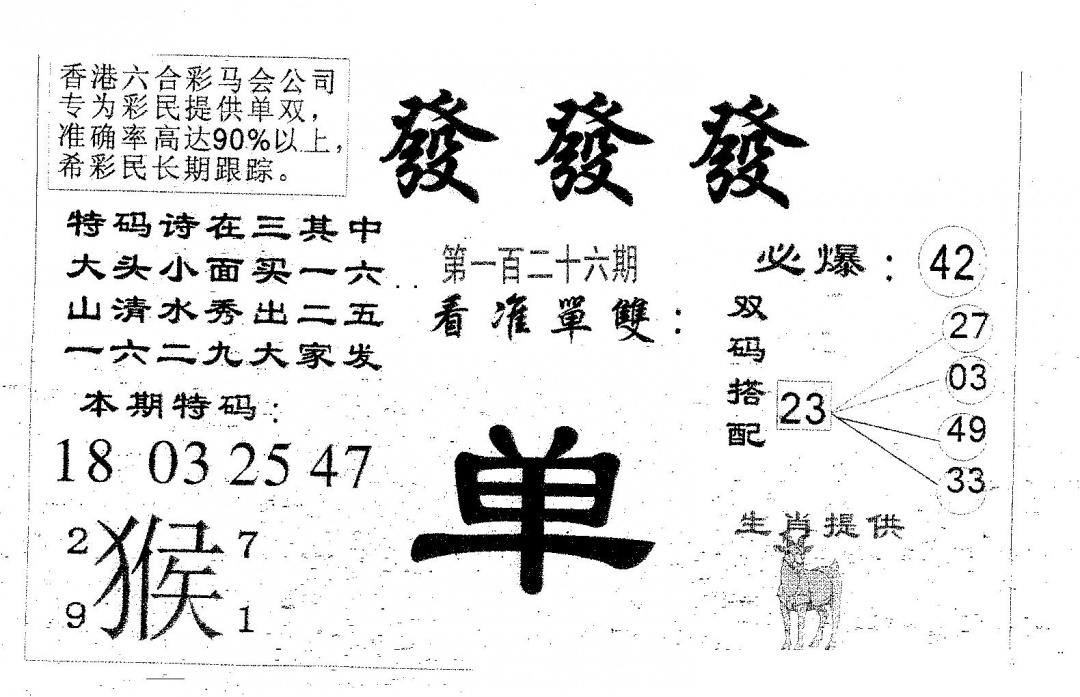 香港六合彩马会公司
专为彩民提供单双，
准确率高达90%以上，
希彩民长期跟踪。
發發發
特码诗在三其中
大头小面买一六
山清水秀出二五
一六二九大家发
本期特码：
18 03 25 47
2 7
猴
9 1
第一百二十六期
看准單雙：
单
必爆：42
双码搭配
23
27
03
49
33
生肖提供